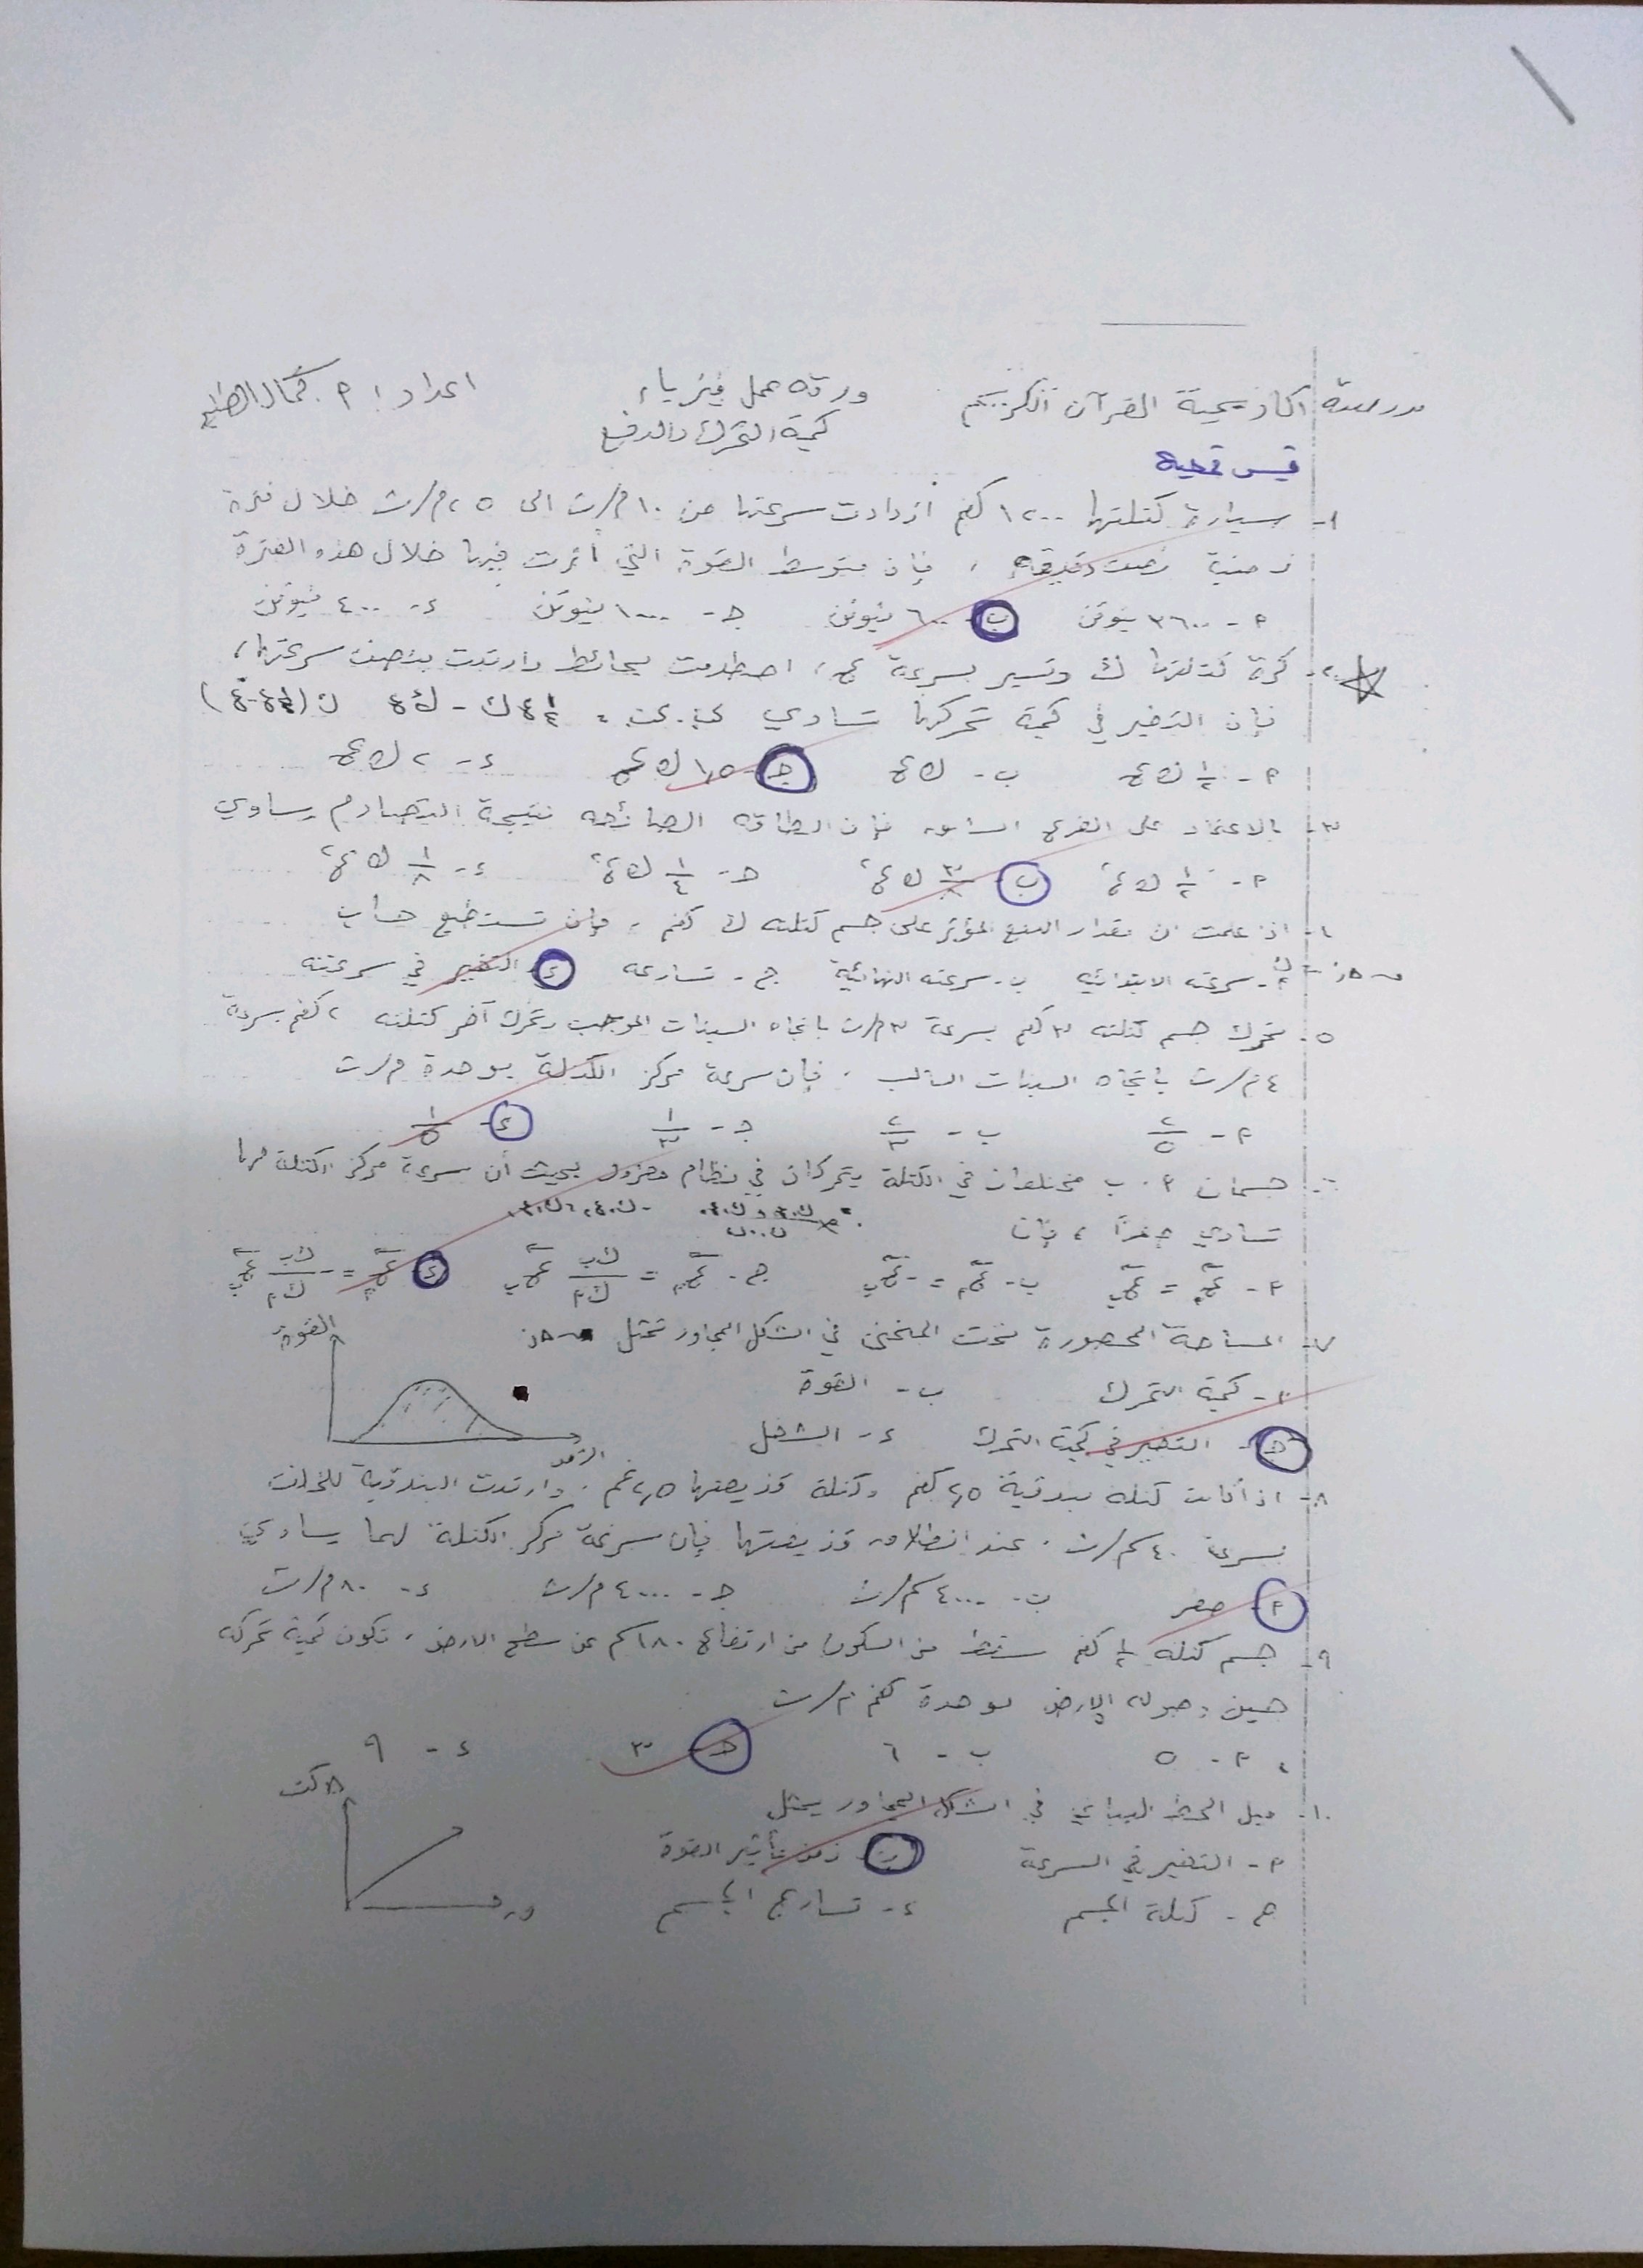 مدرسة اكاديمية القرآن الكريم ورقة عمل فيزياء اعداد: م. كمال
كمية التحرك والدفع
١- سيارة كتلتها ١٢٠٠ كغم ازدادت سرعتها من ١٠ م/ث الى ٢٥ م/ث خلال فترة
زمنية نصف دقيقة ، فإن متوسط القوة التي أثرت فيها خلال هذه الفترة
٢ - ٣٦٠٠ نيوتن ب - ٦٠٠ نيوتن جـ - ١٠٠٠ نيوتن د - ٤٠٠ نيوتن
٢- كرة كتلتها ك وتسير بسرعة ع ، اصطدمت بحائط وارتدت بنصف سرعتها ،
فإن التغير في كمية تحركها تساوي
٢ - ١/٢ ك ع ب - ك ع جـ - ١,٥ ك ع د - ٢ ك ع
٣- بالاعتماد على الفرع السابق فإن الطاقة الضائعة نتيجة التصادم يساوي
٢ - ١/٢ ك ع٢ ب - ٣/٨ ك ع٢ جـ - ١/٤ ك ع٢ د - ١/٨ ك ع٢
٤- اذا علمت ان مقدار الدفع المؤثر على جسم كتلته ك كغم ، فإن تستطيع حساب
٢ - سرعته الابتدائية ب - سرعته النهائية جـ - تسارعه د - التغير في سرعته
٥- تحرك جسم كتلته ٣ كغم بسرعة ٣ م/ث باتجاه السينات الموجب وتحرك آخر كتلته ٢ كغم بسرعة
٤ م/ث باتجاه السينات السالب . فإن سرعة مركز الكتلة بوحدة م/ث
٢ - ٢/٥ ب - ٢/٣ جـ - ١/٣ د - ١/٥
٦- جسمان ٢ ، ب مختلفان في الكتلة يتحركان في نظام معزول بحيث أن سرعة مركز الكتلة لهما
تساوي صفرًا ، فإن
٢ - ع٢ = عب ب - ع٢ = -عب جـ - ع٢ = كب/ك٢ عب د - ع٢ = -كب/ك٢ عب
٧- المساحة المحصورة تحت المنحنى في الشكل المجاور تمثل القوة
٢ - كمية التحرك ب - القوة
جـ - التغير في كمية التحرك د - الشغل
الزمن
٨- اذا كانت كتلة بندقية ٢,٥ كغم وكتلة قذيفتها ٢,٥ غم . وارتدت البندقية للخلف
بسرعة ٤٠ سم/ث . عند انطلاق قذيفتها فإن سرعة مركز الكتلة لهما يساوي
٢ - صفر ب - ٤٠٠٠ سم/ث جـ - ٤٠٠٠ م/ث د - ٨٠ م/ث
٩- جسم كتلته ١/٢ كغم سقط من السكون من ارتفاع ١٨٠ سم عن سطح الارض ، تكون كمية تحركه
حين وصوله الارض بوحدة كغم م/ث
٢ - ٥ ب - ٦ جـ - ٣ د - ٩
١٠- ميل الخط البياني في الشكل المجاور يمثل ∆ كت
٢ - التغير في السرعة ب - زمن تأثير القوة
جـ - كتلة الجسم د - تسارع الجسم